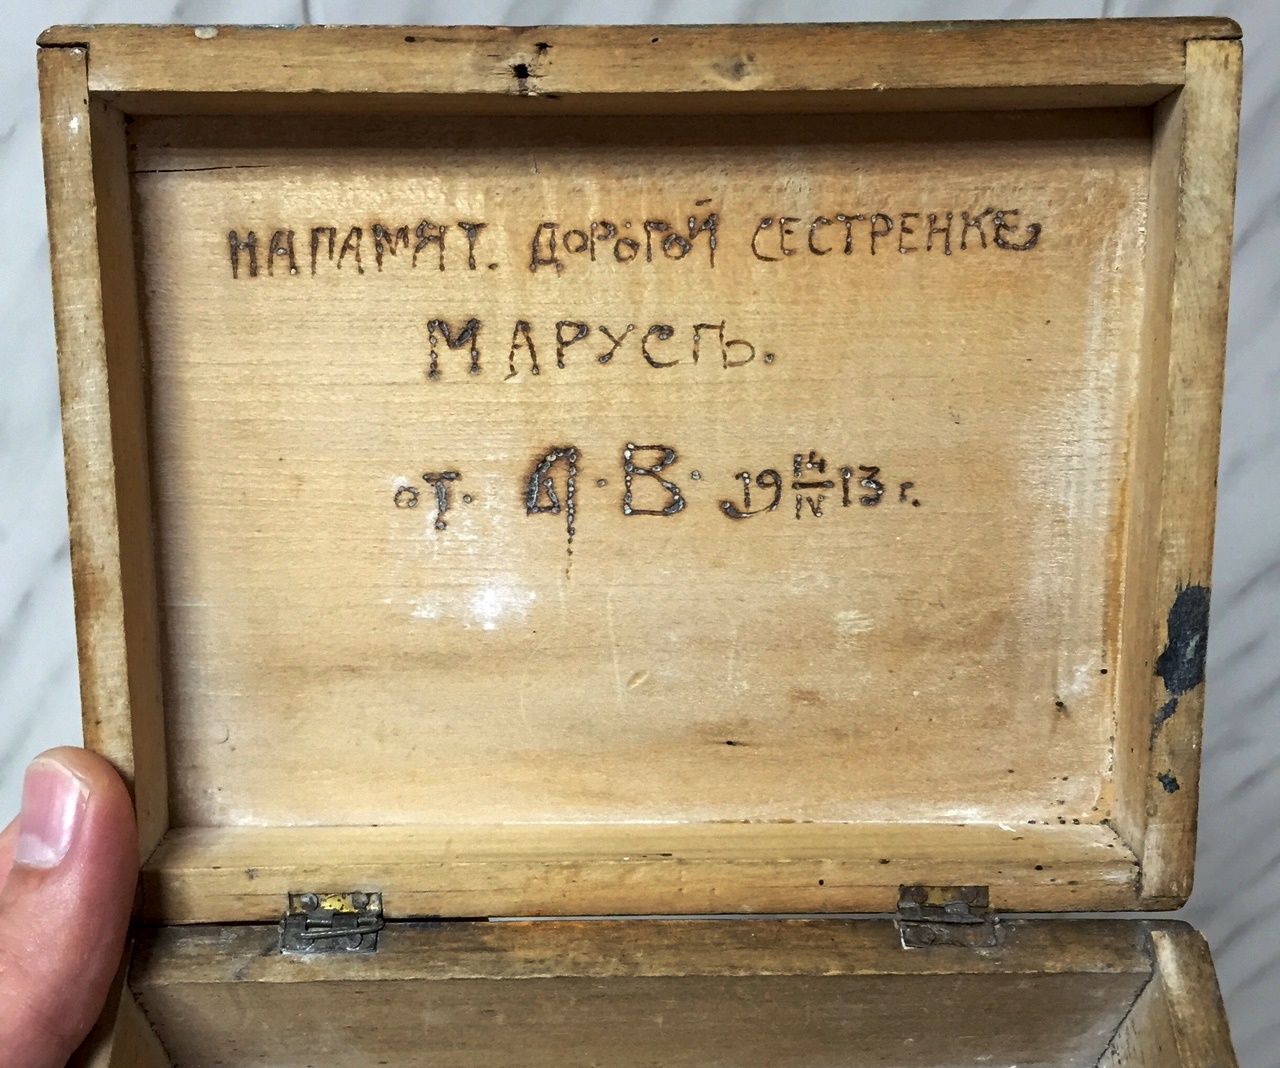 НАПАМЯТ. ДОРОГОЙ СЕСТРЕНКЕ
МАРУСѢ.
от. Д. В. 19 14/IV 13 г.